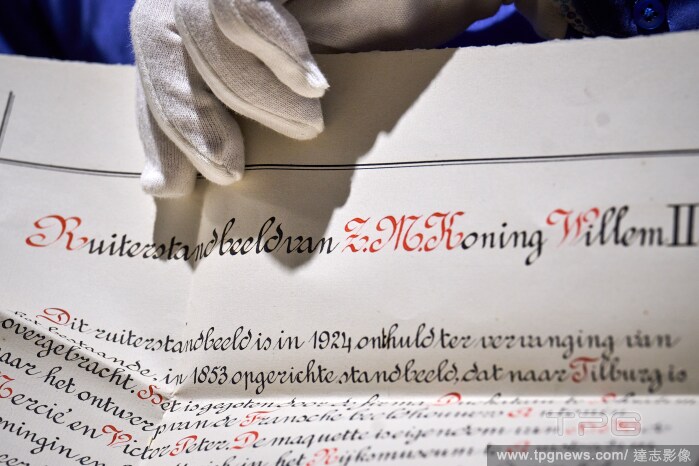 Ruiterstandbeeld van Z.M. Koning Willem II
Dit ruiterstandbeeld is in 1924 onthuld ter vervanging van
in 1853 opgerichte standbeeld, dat naar Tilburg is
overgebracht. Het is gegoten door de firma
naar het ontwerp van de Fransche beeldhouwers
Mercié en Victor Peter. De maquette is eigendom van
in het Rijksmuseum
TPG
www.tpgnews.com/ 達志影像